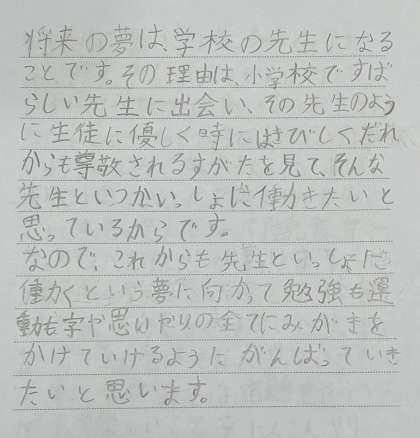 将来の夢は、学校の先生になる
ことです。その理由は、小学校ですば
らしい先生に出会い、その先生のよう
に生徒に優しく時にはきびしくだれ
からも尊敬されるすがたを見て、そんな
先生といつかいっしょに働きたいと
思っているからです。
なので、これからも先生といっしょに
働くという夢に向かって勉強も運
動も字や思いやりの全てにみがきを
かけていけるようにがんばっていき
たいと思います。